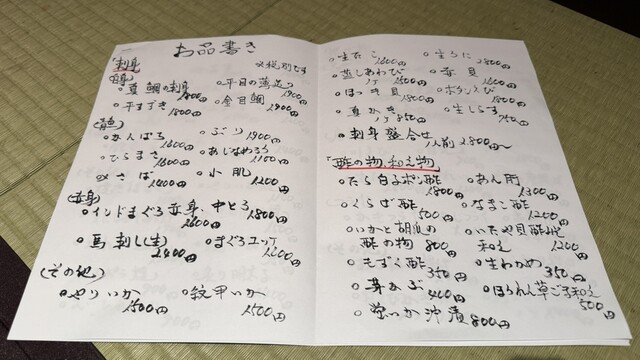 お品書き
刺身
※税別です
(白身)
○真鯛の刺身 1800円
○平目の薄造り 1900円
○平すずき 1800円
○金目鯛 1900円
(青魚)
○かんぱち 1600円
○ぶり 1900円
○ひらまさ 1600円
○あじなめろう 1100円
〆さば 1400円
○小肌 1200円
(赤身)
○インドまぐろ赤身 1600円
中とろ 1800円
○馬刺し(生) 2400円
○まぐろユッケ 1200円
(その他)
○やりいか 1500円
○紋甲いか 1500円
○生たこ 1600円
○生うに 2800円
○蒸しあわび 1600円
○赤貝 1600円
○ほっき貝 1800円
○ボタンえび 1800円
○真かき 1ケ 850円
○生しらす 750円
○刺身盛合せ 1人前 2800円〜
「酢の物、和え物」
○たら白子ポン酢 1800円
○あん肝 1300円
○くらげ酢 500円
○なまこ酢 1200円
○いかと胡瓜の酢の物 800円
○いたや貝酢味噌和え 1200円
○もずく酢 350円
○生わかめ 350円
○芽かぶ 400円
○ほうれん草ごま和え 500円
○蛍いか沖漬 800円